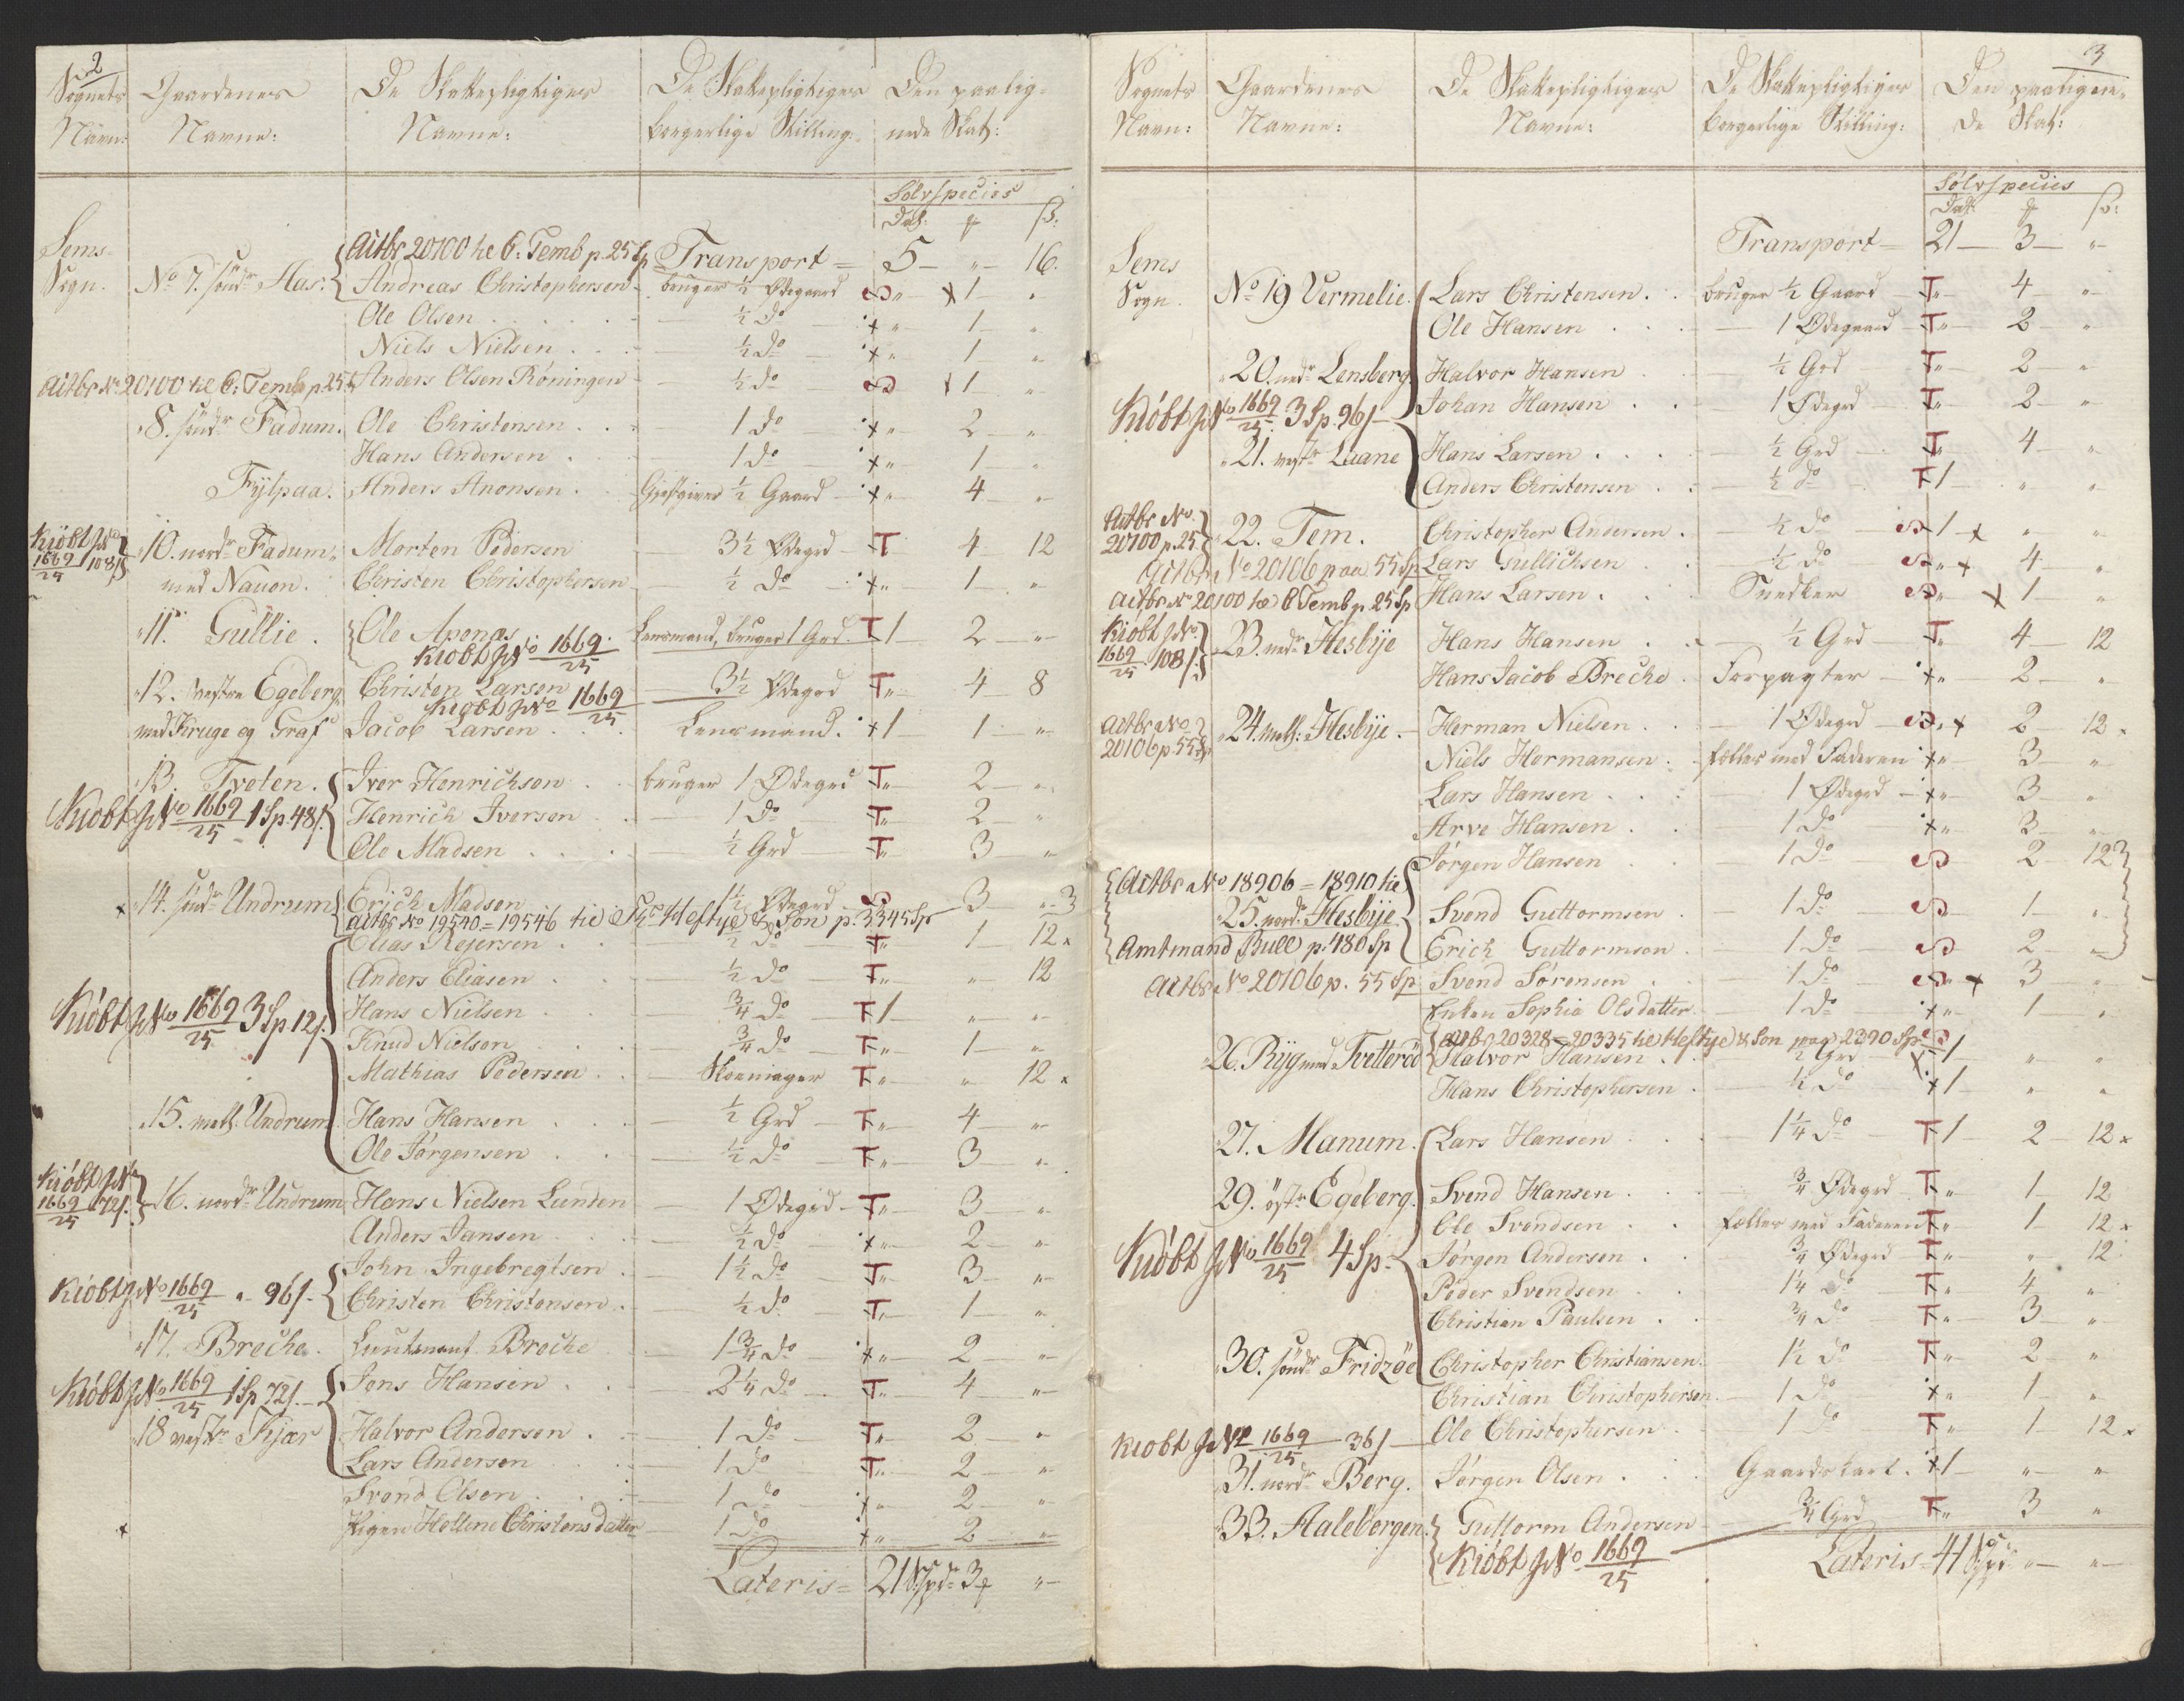 2
Sognets Gaardenes De Skattepligtiges De Skattepligtiges Den paalig-
Navn: Navne: Navne: borgerlige Stilling: nede Skat:
Sølvspecies
Dal: ß:
Sems Actbr 20100 tie C: Temb p. 25 Sp Transport = 5 — " — 16.
Sogn. No 7. söndr Aas. Andreas Christophersen bruger ½ Ødegaard " — x 1 — "
Ole Olsen . . . . ½ do x " — 1 — "
Niels Nielsen . . . ½ do x " — 1 — "
Actbr No 20100 tie C: Temb p. 25 Anders Olsen Röningen ½ do x 1 — "
" 8. söndr Fadum. Ole Christensen . . 1 do x " — 2 — "
Hans Andersen . . 1 do x " — 1 — "
Fylpaa. Anders Anonsen . Giestgiver ½ Gaard x " — 4 — "
Kiöbt No
1669/25 108 ß " 10. nordr Fadum Morten Pedersen 3½ Ødegrd T 4 — 12
med Nauon. Christen Christophersen ½ do x " — 1 — "
" 11. Gullie. Ole Aponas Lensmand, bruger 1 Grd. T 1 — 2 — "
Kiobt No 1669/25
" 12. vestre Egeberg Christen Larsen 3½ Ødegrd T " — 4 — 8
Kiobt No 1669/25
med Kruge og Graf Jacob Larsen . . Lensmand. x 1 — 1 — "
" 13. Tveten. Iver Henrichsen . . bruger 1 Ødegrd T " — 2 — "
Kiobt No 1669/25 1 Sp. 48 ß Henrich Iversen . . 1 do T " — 2 — "
Ole Madsen . . . ½ Grd T " — 3 — "
x " 14. söndr Undrum Erich Madsen 1½ Ødegrd 3 — " 3
Actbr No 19540 = 19546 tie Heftye & Son p. 3345 Sp
Elias Rejersen . . ½ do T " — 1 — 12 x
Anders Eliasen . . ½ do T " — " — 12
Kiöbt No 1669/25 3 Sp 12 ß Hans Nielsen . . ¾ do T 1 — " — "
Knud Nielsen . . ¾ do T " — 1 — "
Mathias Pedersen . . Skoemager T " — " — 12 x
" 15. mell. Undrum Hans Hansen . . ½ Grd T " — 4 — "
Ole Jörgensen . . ½ do T " — 3 — "
Kiöbt No
1669/25 72 ß " 16. nordr Undrum Hans Nielsen Lunden 1 Ødegrd T " — 3 — "
Anders Jansen . . ½ do x " — 2 — "
John Ingebregtsen . 1½ do T " — 3 — "
Kiöbt No 1669/25 " 96 ß Christen Christensen . ½ do T " — 1 — "
" 17. Breche. Lieutenant Breche 1¾ do x " — 2 — "
Kiöbt No 1669/25 1 Sp 72 ß Jens Hansen . . 2¼ do T " — 4 — "
" 18 vestr Kjær Halvor Andersen . 1 do T " — 2 — "
Lars Andersen . . 1 do T " — 2 — "
Svend Olsen . . 1 do x " — 2 — "
x Pigen Hellene Christens datter 1 do x " — 2 — "
Lateris = 21 Spdr 3 "
3
Sognets Gaardenes De Skattepligtiges De Skattepligtiges Den paaligne-
Navn: Navne: Navne: borgerlige Stilling: de Skat:
Sølvspecies
Dal: ß:
Transport = 21 — 3 — "
Sems
Sogn. No 19 Vermelie. Lars Christensen . bruger ½ Gaard T " — 4 — "
Ole Hansen . . 1 Ødegaard T " — 2 — "
" 20. nedr Lensberg Halvor Hansen . . ½ Grd T " — 2 — "
Kiöbt No 1669/25 3 Sp. 96 ß Johan Hansen . . 1 Ødegrd T " — 2 — "
" 21. vestr Laane Hans Larsen . . . ½ Grd T " — 4 — "
Anders Christensen . . ½ do T 1 — " — "
Actbr No
20100 p. 25 22. Tem. Christopher Andersen . ½ do 1 x " — "
Actbr No 20106 paa 55 Sp Lars Gullichsen . . ½ do " x 4 — "
Actbr No 20100 tie C Temb p. 25 Sp Hans Larsen . . . Snedker " x 1 — "
Kiöbt No
1669/25 108 ß 23. nedr Hesbye Hans Hansen . . ½ Grd T " — 4 — 12
Hans Jacob Breche . Forpagter x " — 2 — "
Actbr No
20106 p 55 Sp " 24. mell: Hesbye. Herman Nielsen . . 1 Ødegrd " x 2 — 12 x
Niels Hermansen . fælles med Faderen x " — 3 — "
Lars Hansen . . . 1 Ødegrd x " — 3 — "
Arve Hansen . . 1 do x " — 3 — "
Jörgen Hansen . . 1 do 2 — 12
Actbr No 18906 = 18910 tie
" 25. nordr Hesbye Svend Guttormsen . 1 do 1 — "
Amtmand Bull p. 480 Sp Erich Guttormsen . 1 do 2 — "
Actbr No 20106 p. 55 Sp Svend Sörensen . . 1 do " x 3 — "
Enken Sophia Olsdatter . 1 do x " — 1 — "
Actbr 20328 = 20335 tie Heftye & Son paa 2390 Sp
" 26. Ryg med Tvetteröd Halvor Hansen . ½ Grd x 1 — " — "
Hans Christophersen . ½ do x 1 — " — "
" 27. Manum. Lars Hansen . . . 1¼ do T 1 — 2 — 12 x
29. östr Egeberg. Svend Hansen . . . ¾ Ødegrd T " — 1 — 12
Ole Svendsen . . fælles med Faderen T " — 1 — 12 x
Kiöbt No 1669/25 4 Sp. Jörgen Andersen . . ¾ Ødegrd T " — " — 12
Peder Svendsen . . 1¼ do T " — 4 — "
Christian Paulsen . . ¾ do T " — 3 — "
" 30. söndr Fridzöe Christopher Christiansen . 1½ do T " — 2 — "
Christian Christophersen . 1 do x " — 1 — "
Kiobt No 1669/25 36 ß Ole Christophersen . . 1 do T " — 1 — 12 x
" 31. nordr Berg. Jörgen Olsen . . . Gaardskarl. x 1 — " — "
" 33. Halebergen Guttorm Andersen ¾ Grd T " — 3 — "
Kiöbt No 1669/25
Lateris = 41 Spd " — "